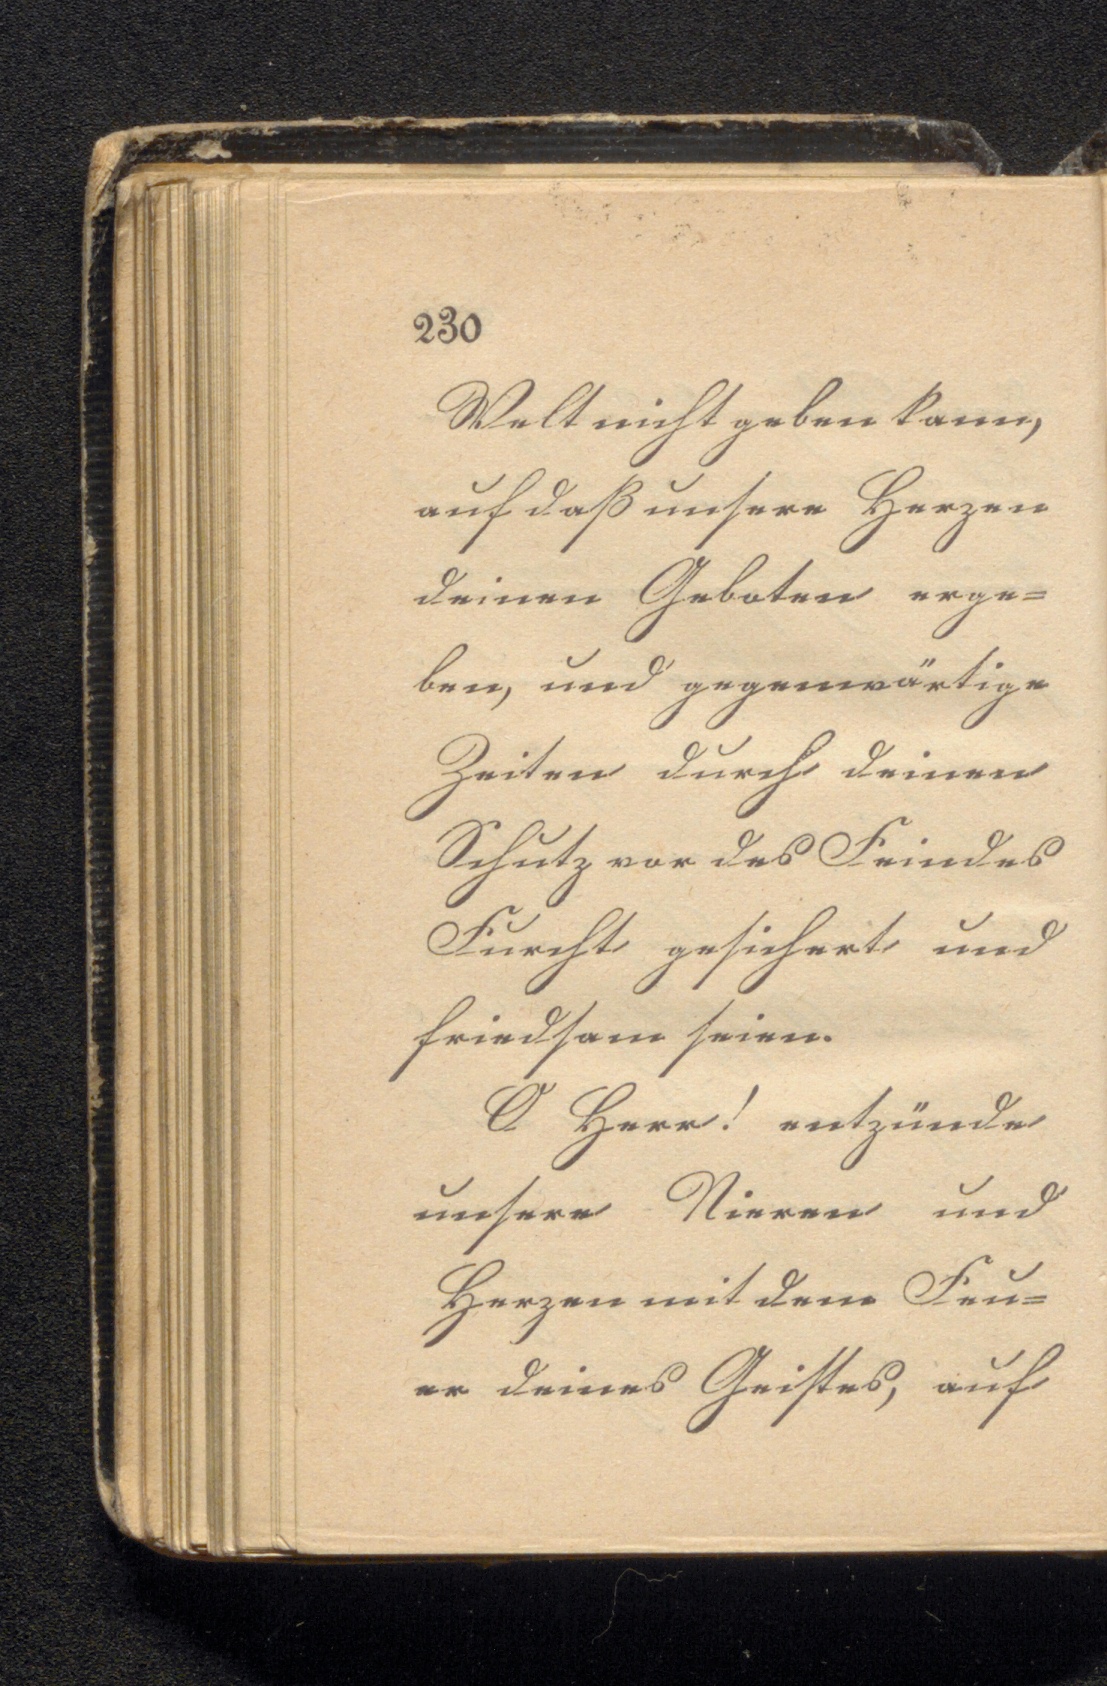 230
Welt nicht geben kann,
auf daß unsere Herzen
deinen Geboten erge=
ben, und gegenwärtige
Zeiten durch deinen
Schutz vor des Feindes
Furcht gesichert und
friedsam seien.
O Herr! entzünde
unsere Nieren und
Herzen mit dem Feu=
er deines Geistes, auf